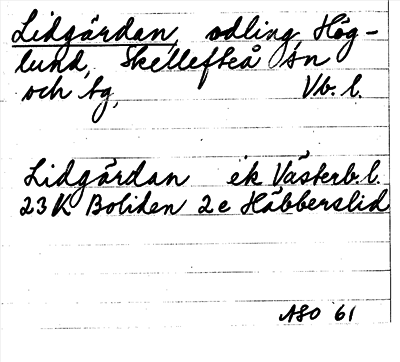 Lidgärdan, odling, Hög-
lund, Skellefteå sn
och tg, Vb. l.
Lidgärdan ek Västerb. l.
23 K Boliden 2 e Häbberslid
ASO 61